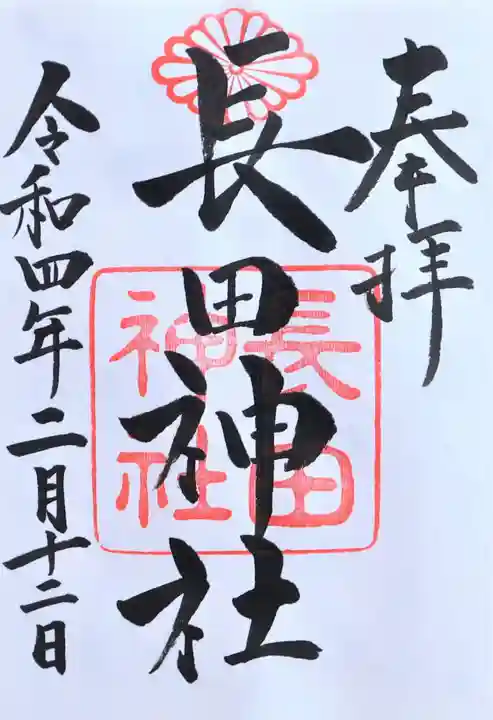 奉拝
長田神社
長田
神社
令和四年二月十二日